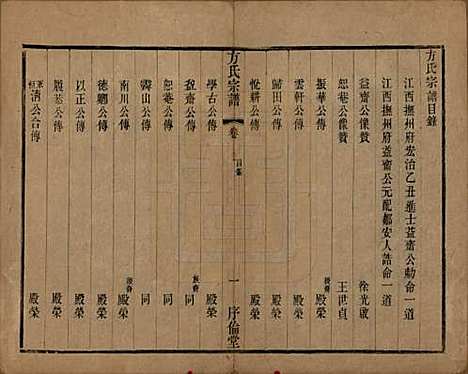 方氏宗譜目錄
江西撫州府宏治乙丑進士益齋公勅命一道
江西撫州府益齋公元配鄒安人誥命一道
益齋公像贊 徐光啟
恕菴公像贊 王世貞
振華公傳 後裔 殿榮
歸田公傳 殿榮
雲軒公傳 殿榮
悅耕公傳 殿榮
方氏宗譜 卷 目錄 一 序倫堂
學古公傳 殿榮
毅齋公傳 族裔 殿榮
恕菴公傳 同
霽山公傳 同
南川公傳 後裔 殿榮
德卿公傳 殿榮
以正公傳 殿榮
殿榮
清公合傳 殿榮